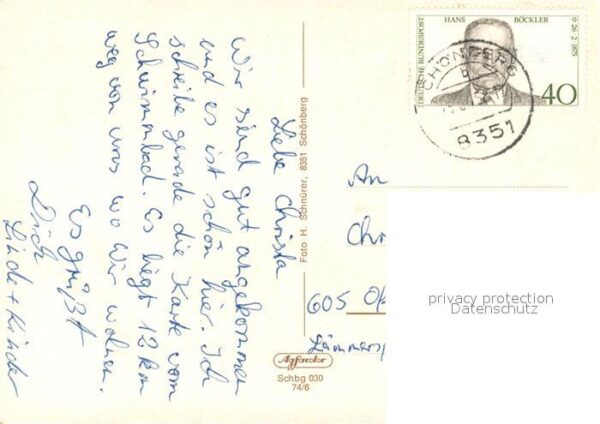 Liebe Christa
Wir sind gut angekommen
und es ist schön hier. Ich
schreibe gerade die Karte vom
Schwimmbad. Es liegt 12 km
weg von uns wo wir wohnen.
Es grüßt
Dich
Linde + Kinder
Foto H. Schnürer, 8351 Schönberg
Agfacolor
Schbg 030
74/6
DEUTSCHE BUNDESPOST
HANS BÖCKLER
* 26·2·1875
40
SCHÖNBERG
8351
An
Chr
605 Of
Lämmersp
privacy protection
Datenschutz